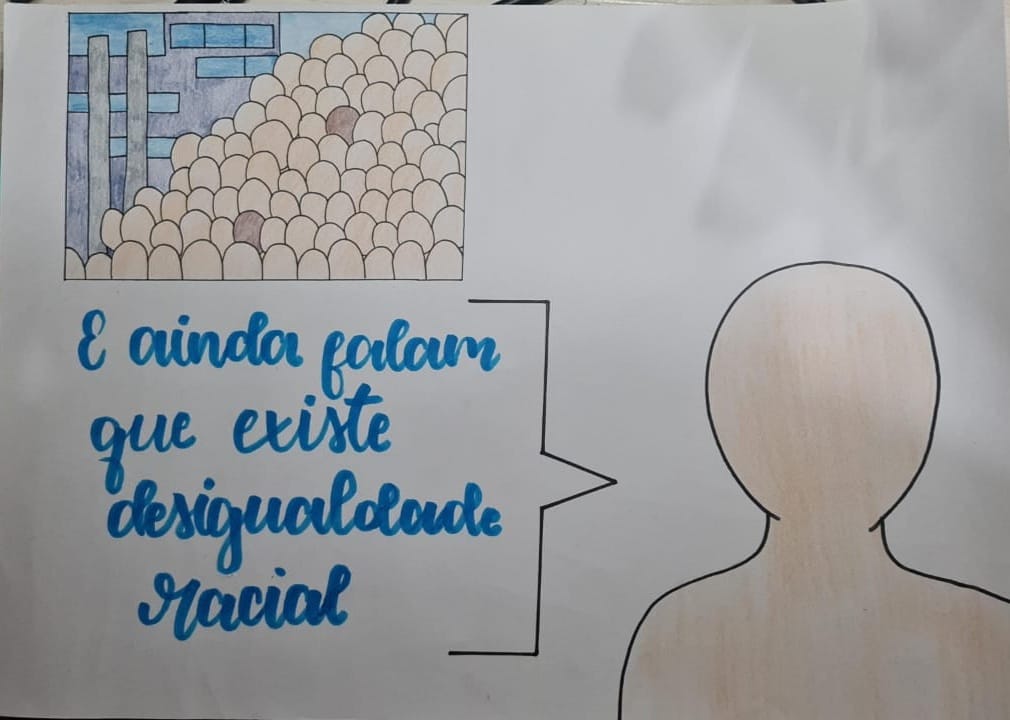 E ainda falam
que existe
desigualdade
racial